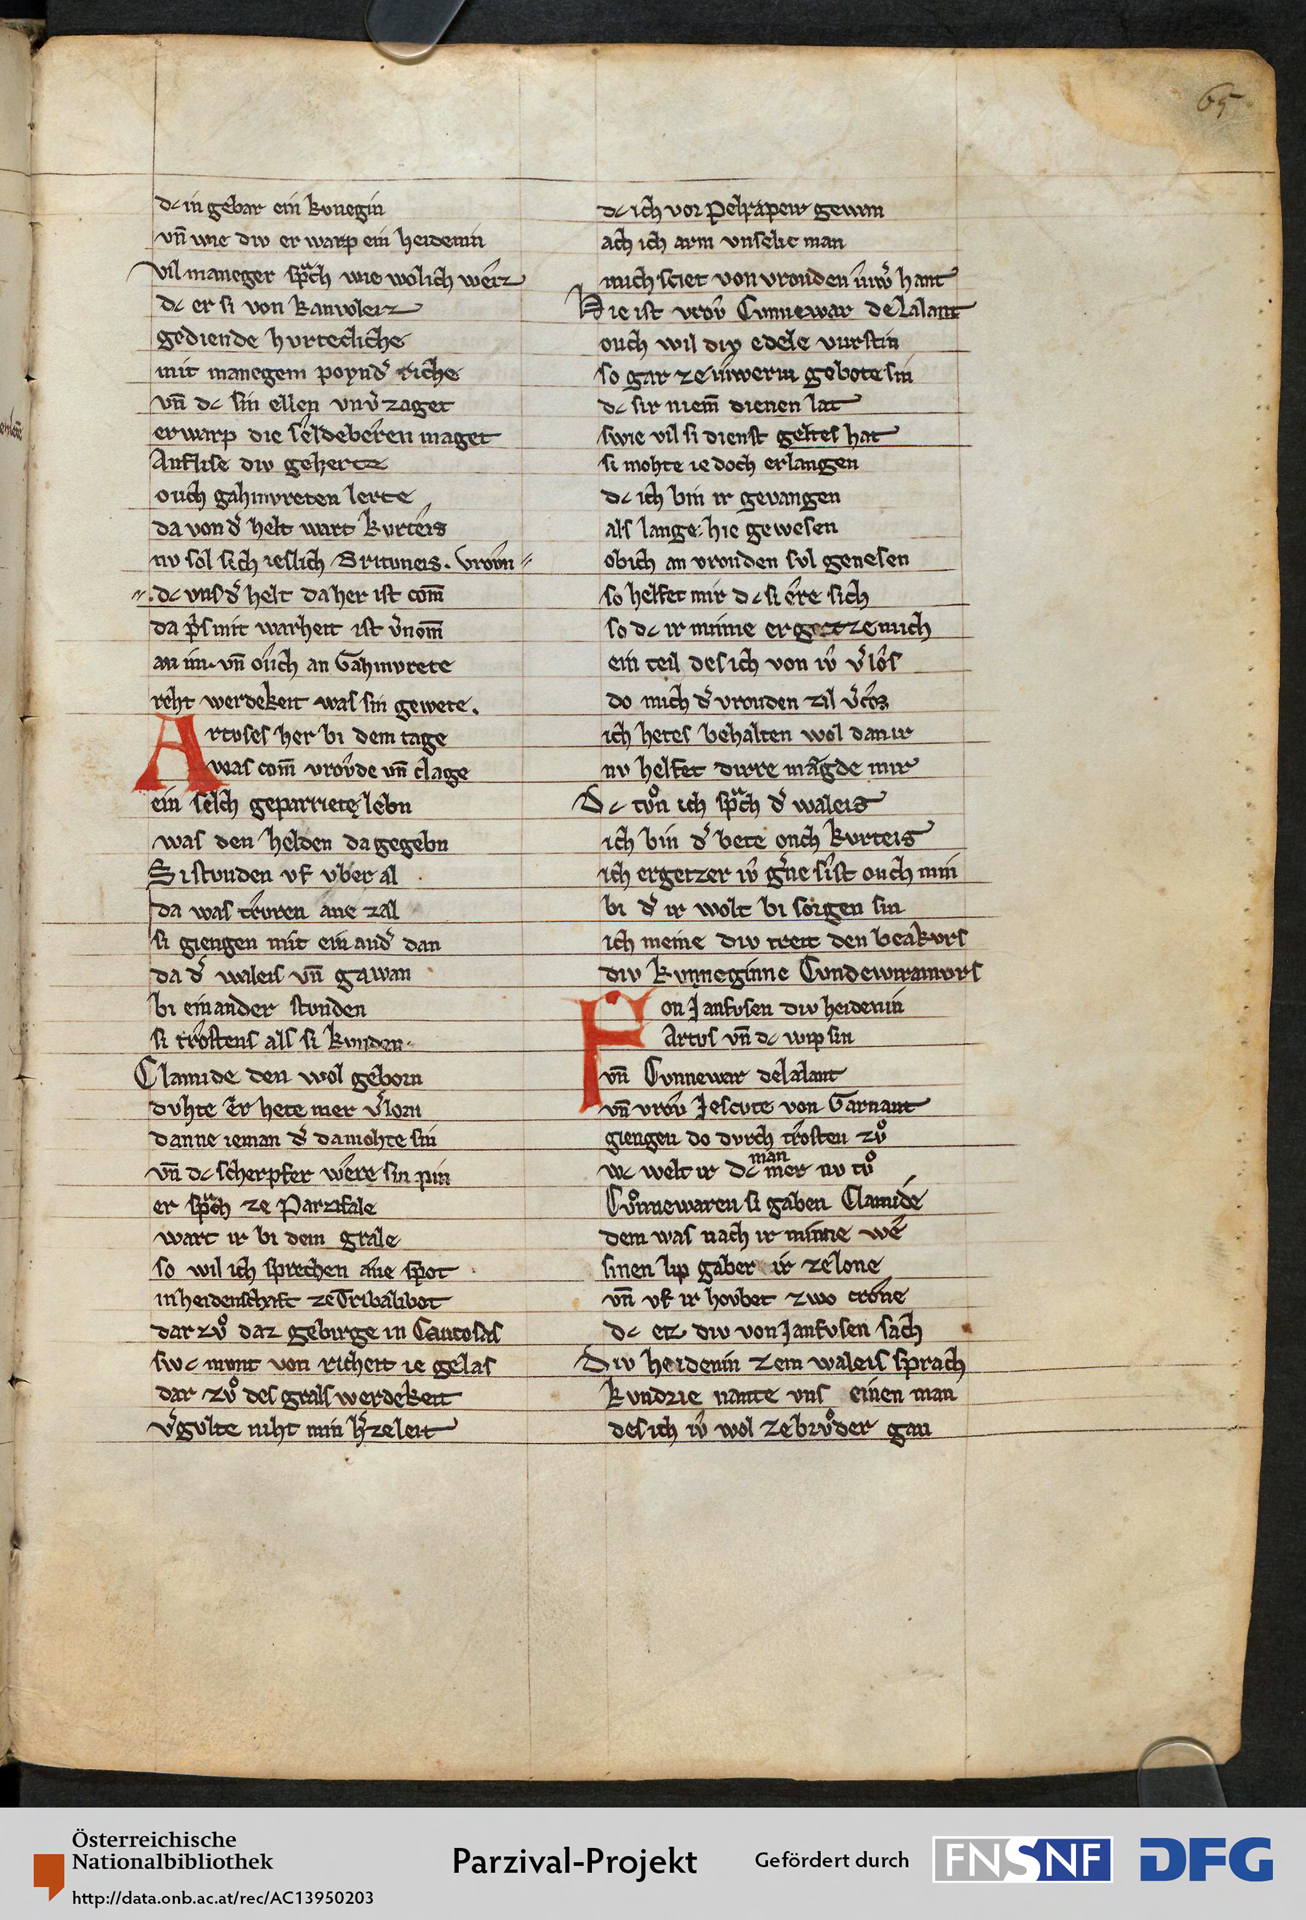 65
dc in gebar ein kvnegin
vn̄ wie div er warp ein heidenin
vil maneger sprͣch wie wolich weiz
dc er si von kanvoleiz
gediende hvrtecliche
mit manegem poynd͛ riche
vn̄ dc sin ellen vnv͛zaget
erwarp die sêldebêren maget
Anflise div geherte
ouch gahmvreten lerte
da von d͛ helt wart kvrteis
nv sol sich ieslich Britvneis. vrovn
dc vns d͛ helt da her ist com̄
da p͛s mit warheit ist v͛nom̄
an im vn̄ ouch an Gahmvrete
reht werdekeit was sin gewete.
Artvses her bi dem tage
was com̄ vrovde vn̄ clage
ein selch geparriete lebn
was den helden da gegebn
Si stvnden vf vber al
da was trvren ane zal
si giengen mit ein and͛ dan
da d͛ waleis vn̄ gawan
bi ein ander stvnden
si trostens als si kvnden
Clamide den wol geborn
dvhte Er hete mer v͛lorn
danne ieman d͛ da mohte sin
vn̄ dc scherpfer wêre sin pin
er sprͣch ze Parzifale
wart ir bi dem grale
so wil ich sprechen âne spot
in heidenschaft ze Tribalibot
dar zvͦ daz gebirge in Caucosas
swc mvnt von richeit ie gelas
dar zvͦ des grals werdekeit
v͛gvlte niht min h͛zeleit
dc ich vor Pelrapeir gewan
ach ich arm vnselic man
mich sciet von vrouden iuw͛ hant
Hie ist vrov Cunnewar de Lalant
ouch wil div edele vurstin
so gar ze iuwerm gebote sin
dc sir niem̄ dienen lat
swie vil si dienst geltes hat
si mohte iedoch erlangen
dc ich bin ir gevangen
als lange hie gewesen
ob ich an vrouden svl genesen
so helfet mir dc si êre sich
so dc ir minne ergetze mich
ein teil des ich von iv v͛lôs
do mich d͛ vrouden zil v͛cos
ich hetes behalten wol dan ir
nv helfet dirre mägde mir
Dc tvͦn ich sprͣch d͛ waleis
ich bin d͛ bete ouch kvrteis
ich ergetzer iv g͛ne sist ouch min
bi d͛ ir wolt bi sorgen sin
ich meine div treit den beakvrs
div kvnneginne Cundewiramvrs
Fon Janfvsen div heidenin
Artvs vn̄ dc wip sin
vn̄ Cvnnewar de lalant
vn̄ vrov Jescvte von Garnant
giengen do dvrch trosten zvͦ
wc welt ir dc man mer nv tvͦ
Cvͦnnewaren si gaben Clamide
dem was nach ir minne wê
sinen lip gaber ir ze lone
vn̄ vf ir hovbet zwo crône
dc ez div von Janfvsen sach
Div heidenin zem waleis sprach
kvndrie nante vns einen man
des ich iv wol ze brvͦder gan
Österreichische
Nationalbibliothek
http://data.onb.ac.at/rec/AC13950203
Parzival-Projekt
Gefördert durch
FNSNF
DFG